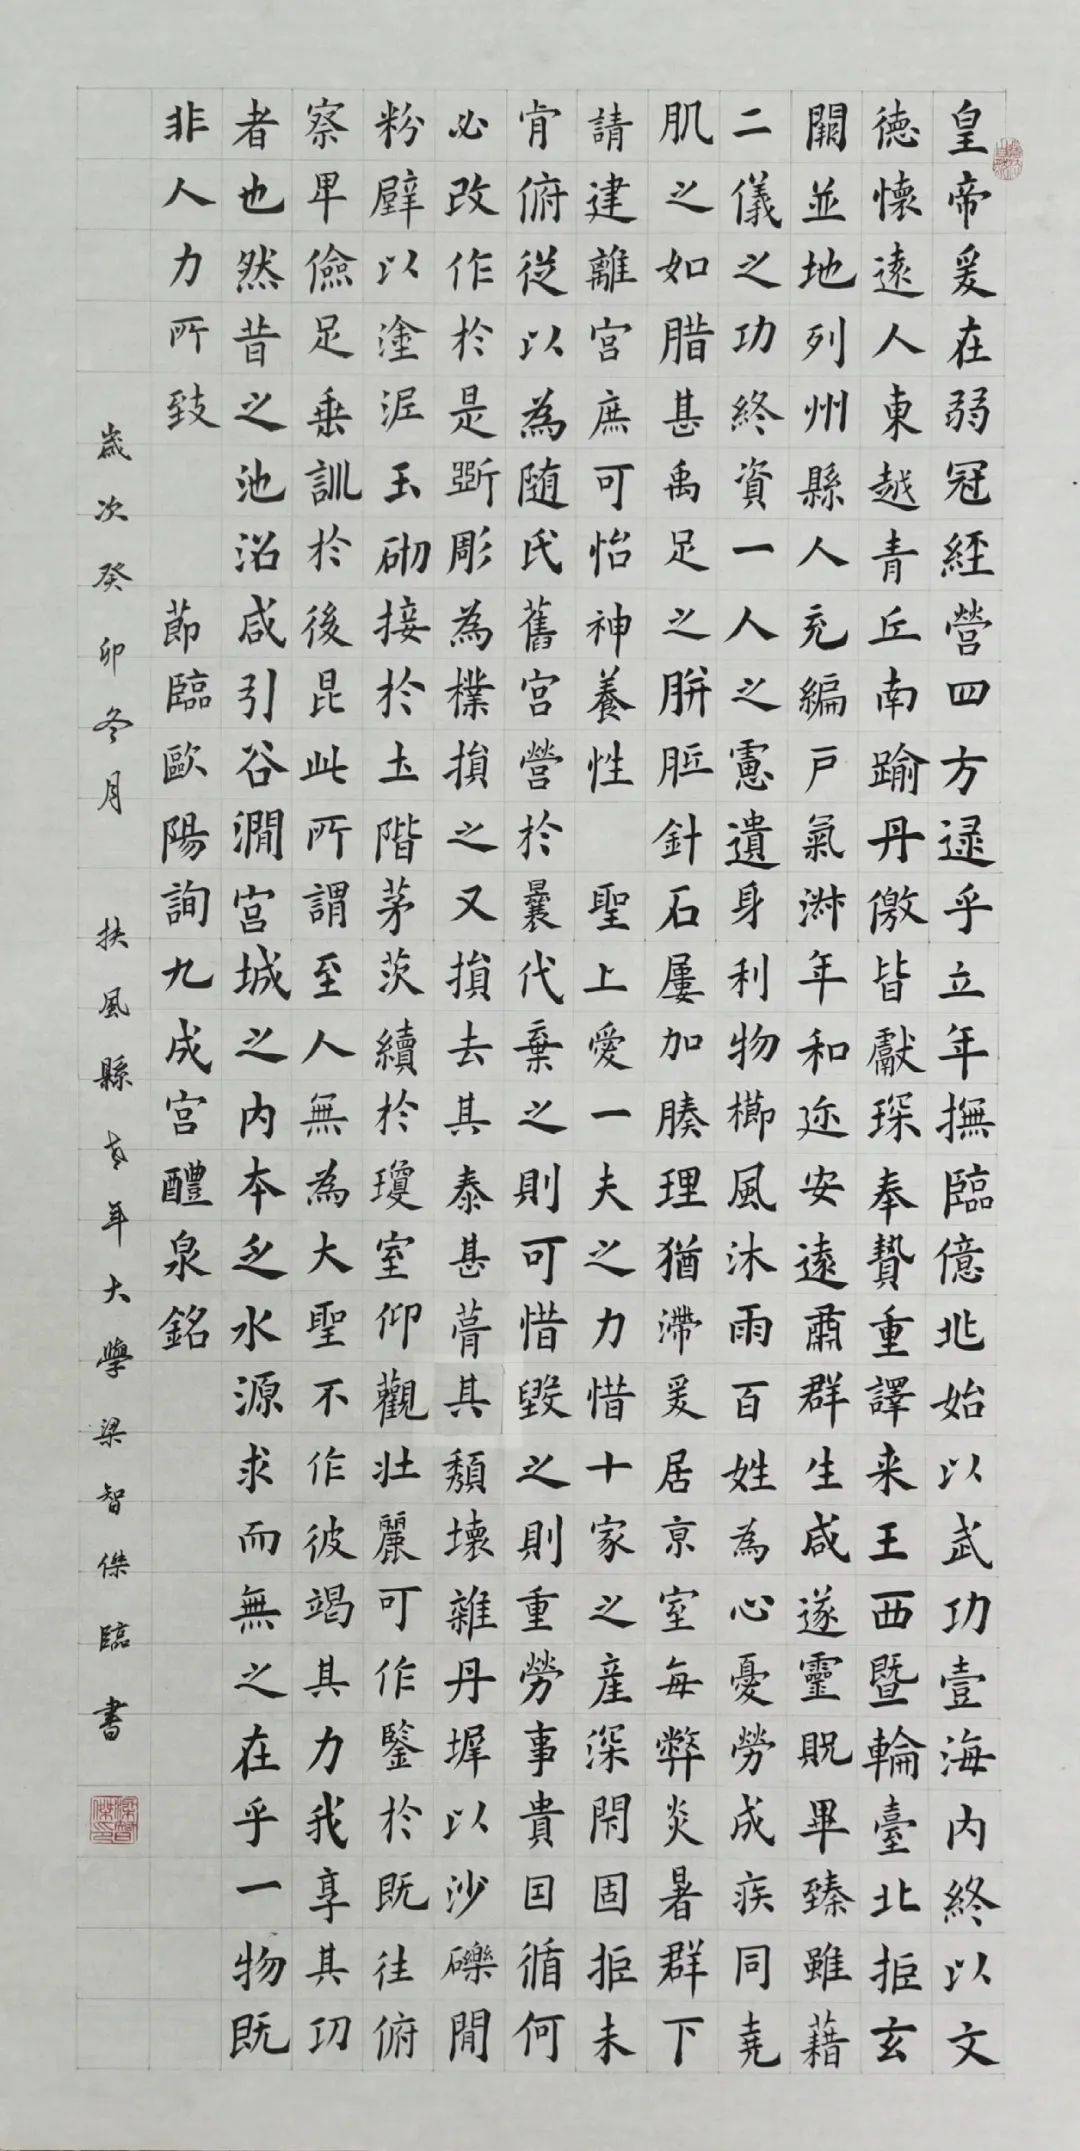 皇帝爰在弱冠經營四方逯乎立年撫臨億兆始以武功壹海內終以文
德懷遠人東越青丘南踰丹儌皆獻琛奉贄重譯来王西暨輪臺北拒玄
闕並地列州縣人充編戶氣淋年和迩安遠肅群生咸遂靈貺畢臻雖藉
二儀之功終資一人之慮遺身利物櫛風沐雨百姓為心憂勞成疾同堯
肌之如腊甚禹足之胼胝針石屢加腠理猶滯爰居京室每弊炎暑群下
請建離宮庶可怡神養性 聖上愛一夫之力惜十家之產深閇固拒未
肯俯從以為随氏舊宮營於曩代棄之則可惜毀之則重勞事貴因循何
必改作於是斲彫為樸損之又損去其泰甚葺其頹壞雜丹墀以沙礫間
粉壁以塗泥玉砌接於土階茅茨續於瓊室仰觀壯麗可作鑒於既往俯
察卑儉足垂訓於後昆此所謂至人無為大聖不作彼竭其力我享其功
者也然昔之池沼咸引谷澗宮城之內本乏水源求而無之在乎一物既
非人力所致 節臨歐陽詢九成宮醴泉銘
歲次癸卯冬月 扶風縣老年大學梁智傑臨書